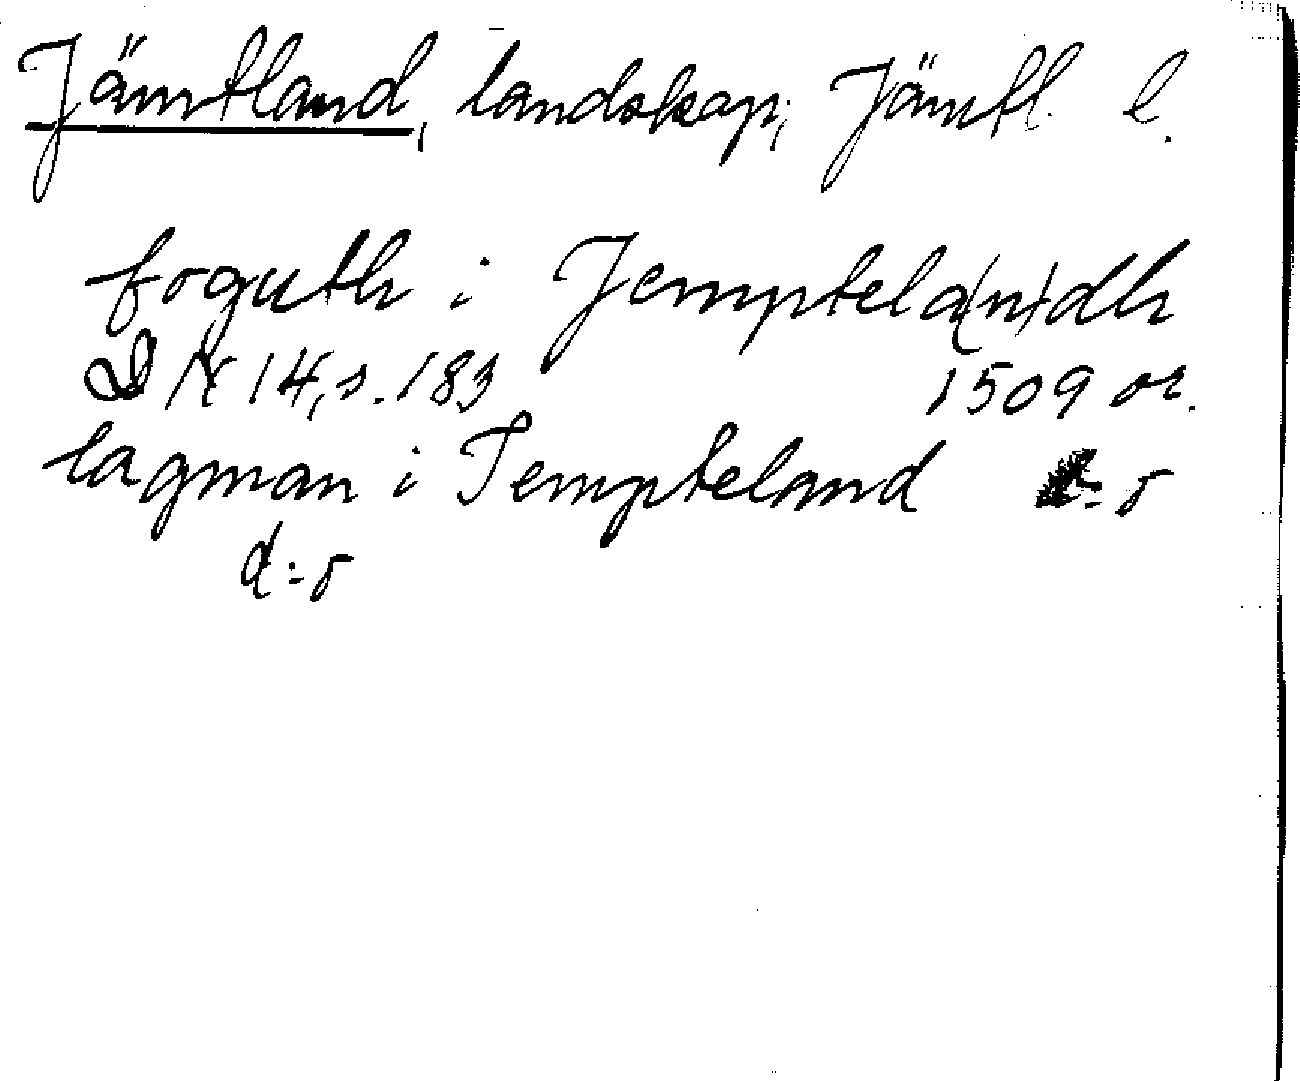 Jämtland, landskap, Jämtl. l.
foguth i Jemptela(n)dh
D IX 14, s. 183 1509 or.
lagman i Jempteland d:o
d:o